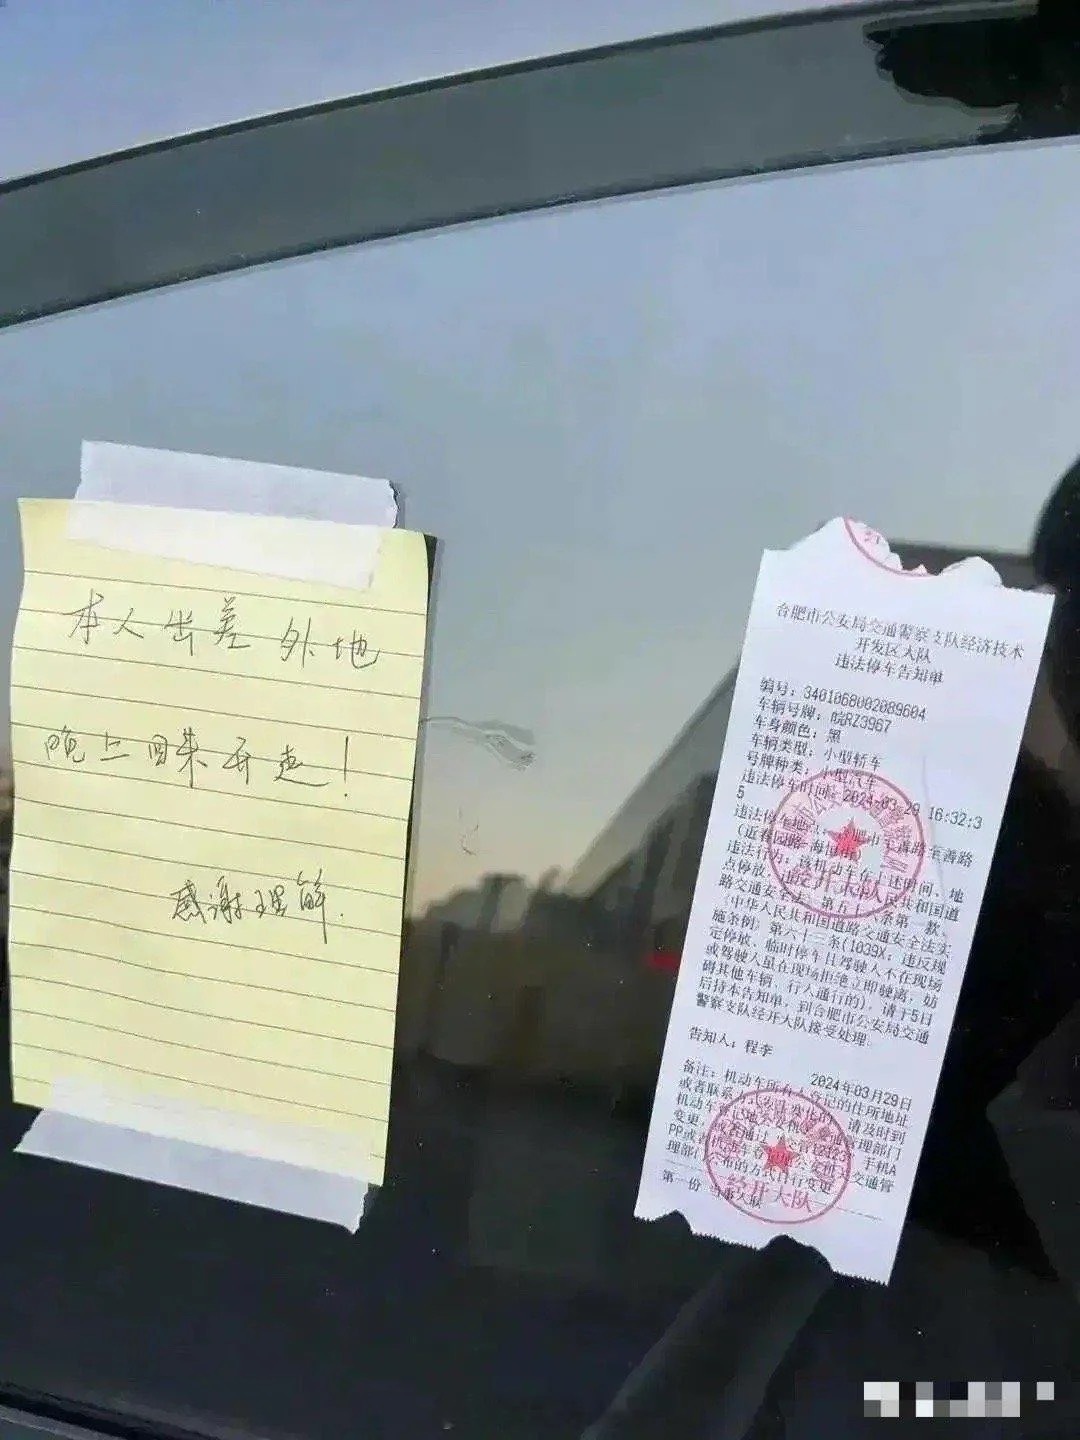 本人出差外地
晚上回来开走！
感谢理解.
合肥市公安局交通警察支队经济技术
开发区大队
违法停车告知单
编号：3401068002089604
车辆号牌：皖RZ3967
车身颜色：黑
车辆类型：小型轿车
号牌种类：小型汽车
违法停车时间：2024-03-29 16:32:3
5
违法停车地点：合肥市至善路至善路
(近春园路-海恒路)
违法行为：该机动车在上述时间、地
点停放，违反《中华人民共和国道
路交通安全法》第五十六条第一款、
《中华人民共和国道路交通安全法实
施条例》第六十三条(1039X：违反规
定停放、临时停车且驾驶人不在现场
或驾驶人虽在现场拒绝立即驶离，妨
碍其他车辆、行人通行的)，请于5日
后持本告知单，到合肥市公安局交通
警察支队经开大队接受处理.
告知人：程李
2024年03月29日
备注：机动车所有人登记的住所地址
或者联系电话发生变化的，请及时到
机动车登记地公安机关交通管理部门
变更，或者通过“交管12123”手机A
理部门公布的方式自行变更
第一份 当事人联
经开大队
经开大队